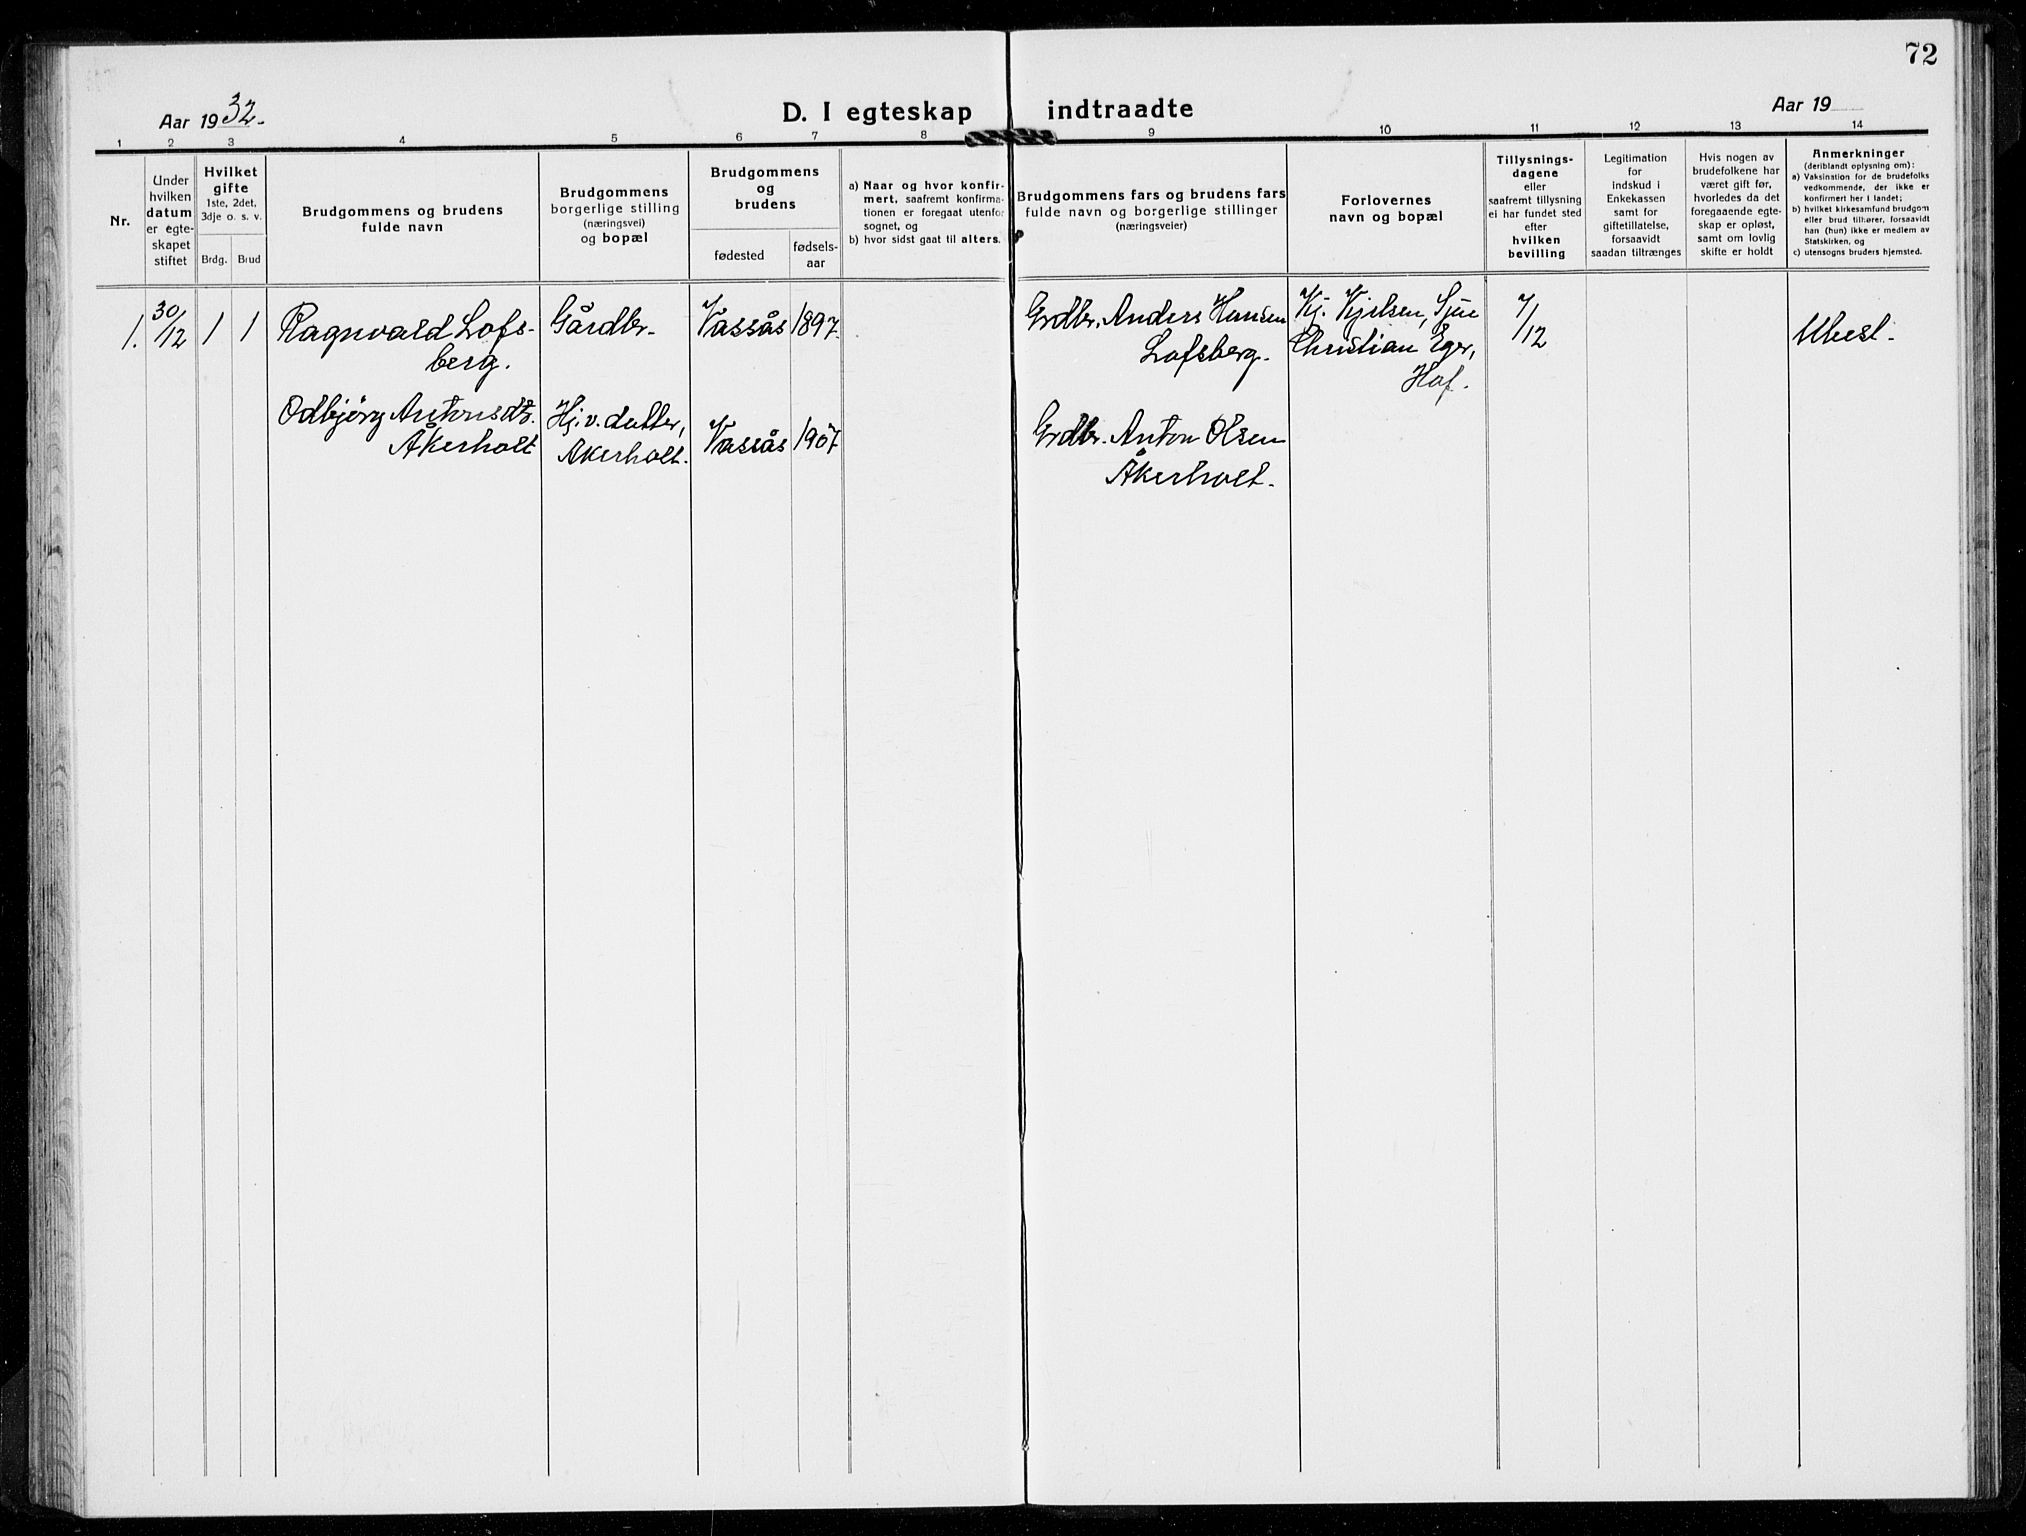 72
Aar 1932.
D. I egteskap indtraadte
Aar 19
1 2 3 4 5 6 7 8 9 10 11 12 13 14
Nr.
Under
hvilken
datum
er egte-
skapet
stiftet
Hvilket
gifte
1ste, 2det,
3dje o. s. v.
Brdg. Brud
Brudgommens og brudens
fulde navn
Brudgommens
borgerlige stilling
(næringsvei)
og bopæl
Brudgommens
og
brudens
fødested
fødsels-
aar
a) Naar og hvor konfir-
mert, saafremt konfirma-
tionen er foregaat utenfor
sognet, og
b) hvor sidst gaat til alters.
Brudgommens fars og brudens fars
fulde navn og borgerlige stillinger
(næringsveier)
Forlovernes
navn og bopæl
Tillysnings-
dagene
eller
saafremt tillysning
ei har fundet sted
efter
hvilken
bevilling
Legitimation
for
indskud i
Enkekassen
samt for
giftetillatelse,
forsaavidt
saadan tiltrænges
Hvis nogen av
brudefolkene har
været gift før,
hvorledes da det
foregaaende egte-
skap er opløst,
samt om lovlig
skifte er holdt
Anmerkninger
(deriblandt oplysning om):
a) Vaksination for de brudefolks
vedkommende, der ikke er
konfirmert her i landet;
b) hvilket kirkesamfund brudgom
eller brud tilhører, forsaavidt
han (hun) ikke er medlem av
Statskirken, og
c) utensogns bruders hjemsted.
1. 30/12 1 1 Ragnvald Lofs-
berg.
Gårdbr.
Vassås 1897.
Grdbr. Anders Hansen
Lofsberg.
Kj. Kjelsen, Sjue
Christian Eger,
Hof.
7/12
Ubesl.
Odbjörg Antonsdtr.
Åkerholt
Hj.v. datter,
Åkerholt.
Vassås 1907
Grdbr. Anton Olsen
Åkerholt.